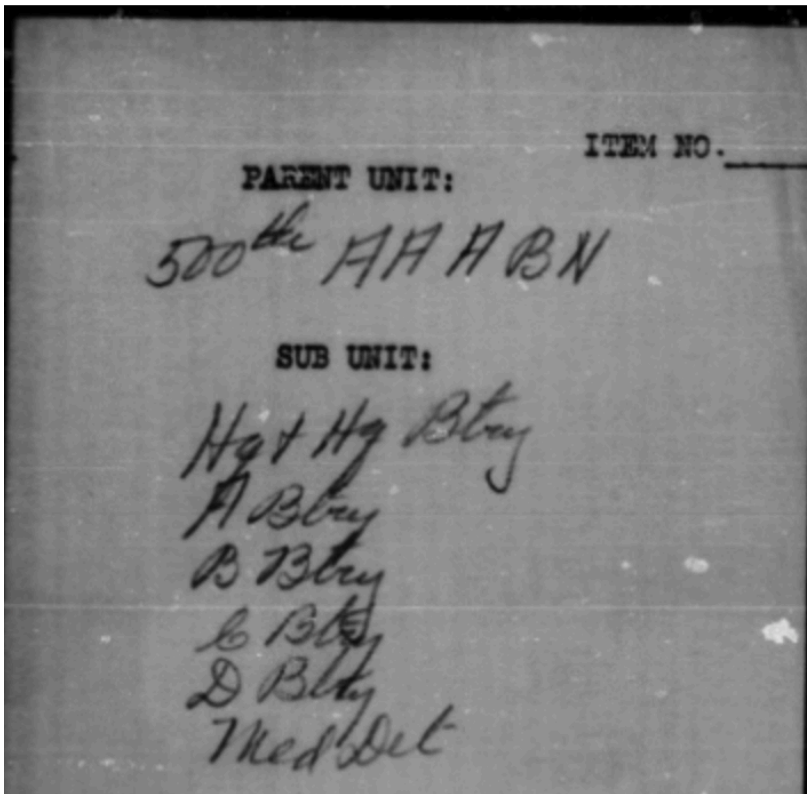 ITEM NO.
PARENT UNIT:
500th AAA BN
SUB UNIT:
Hq + Hq Btry
A Btry
B Btry
C Btry
D Btry
Med Det